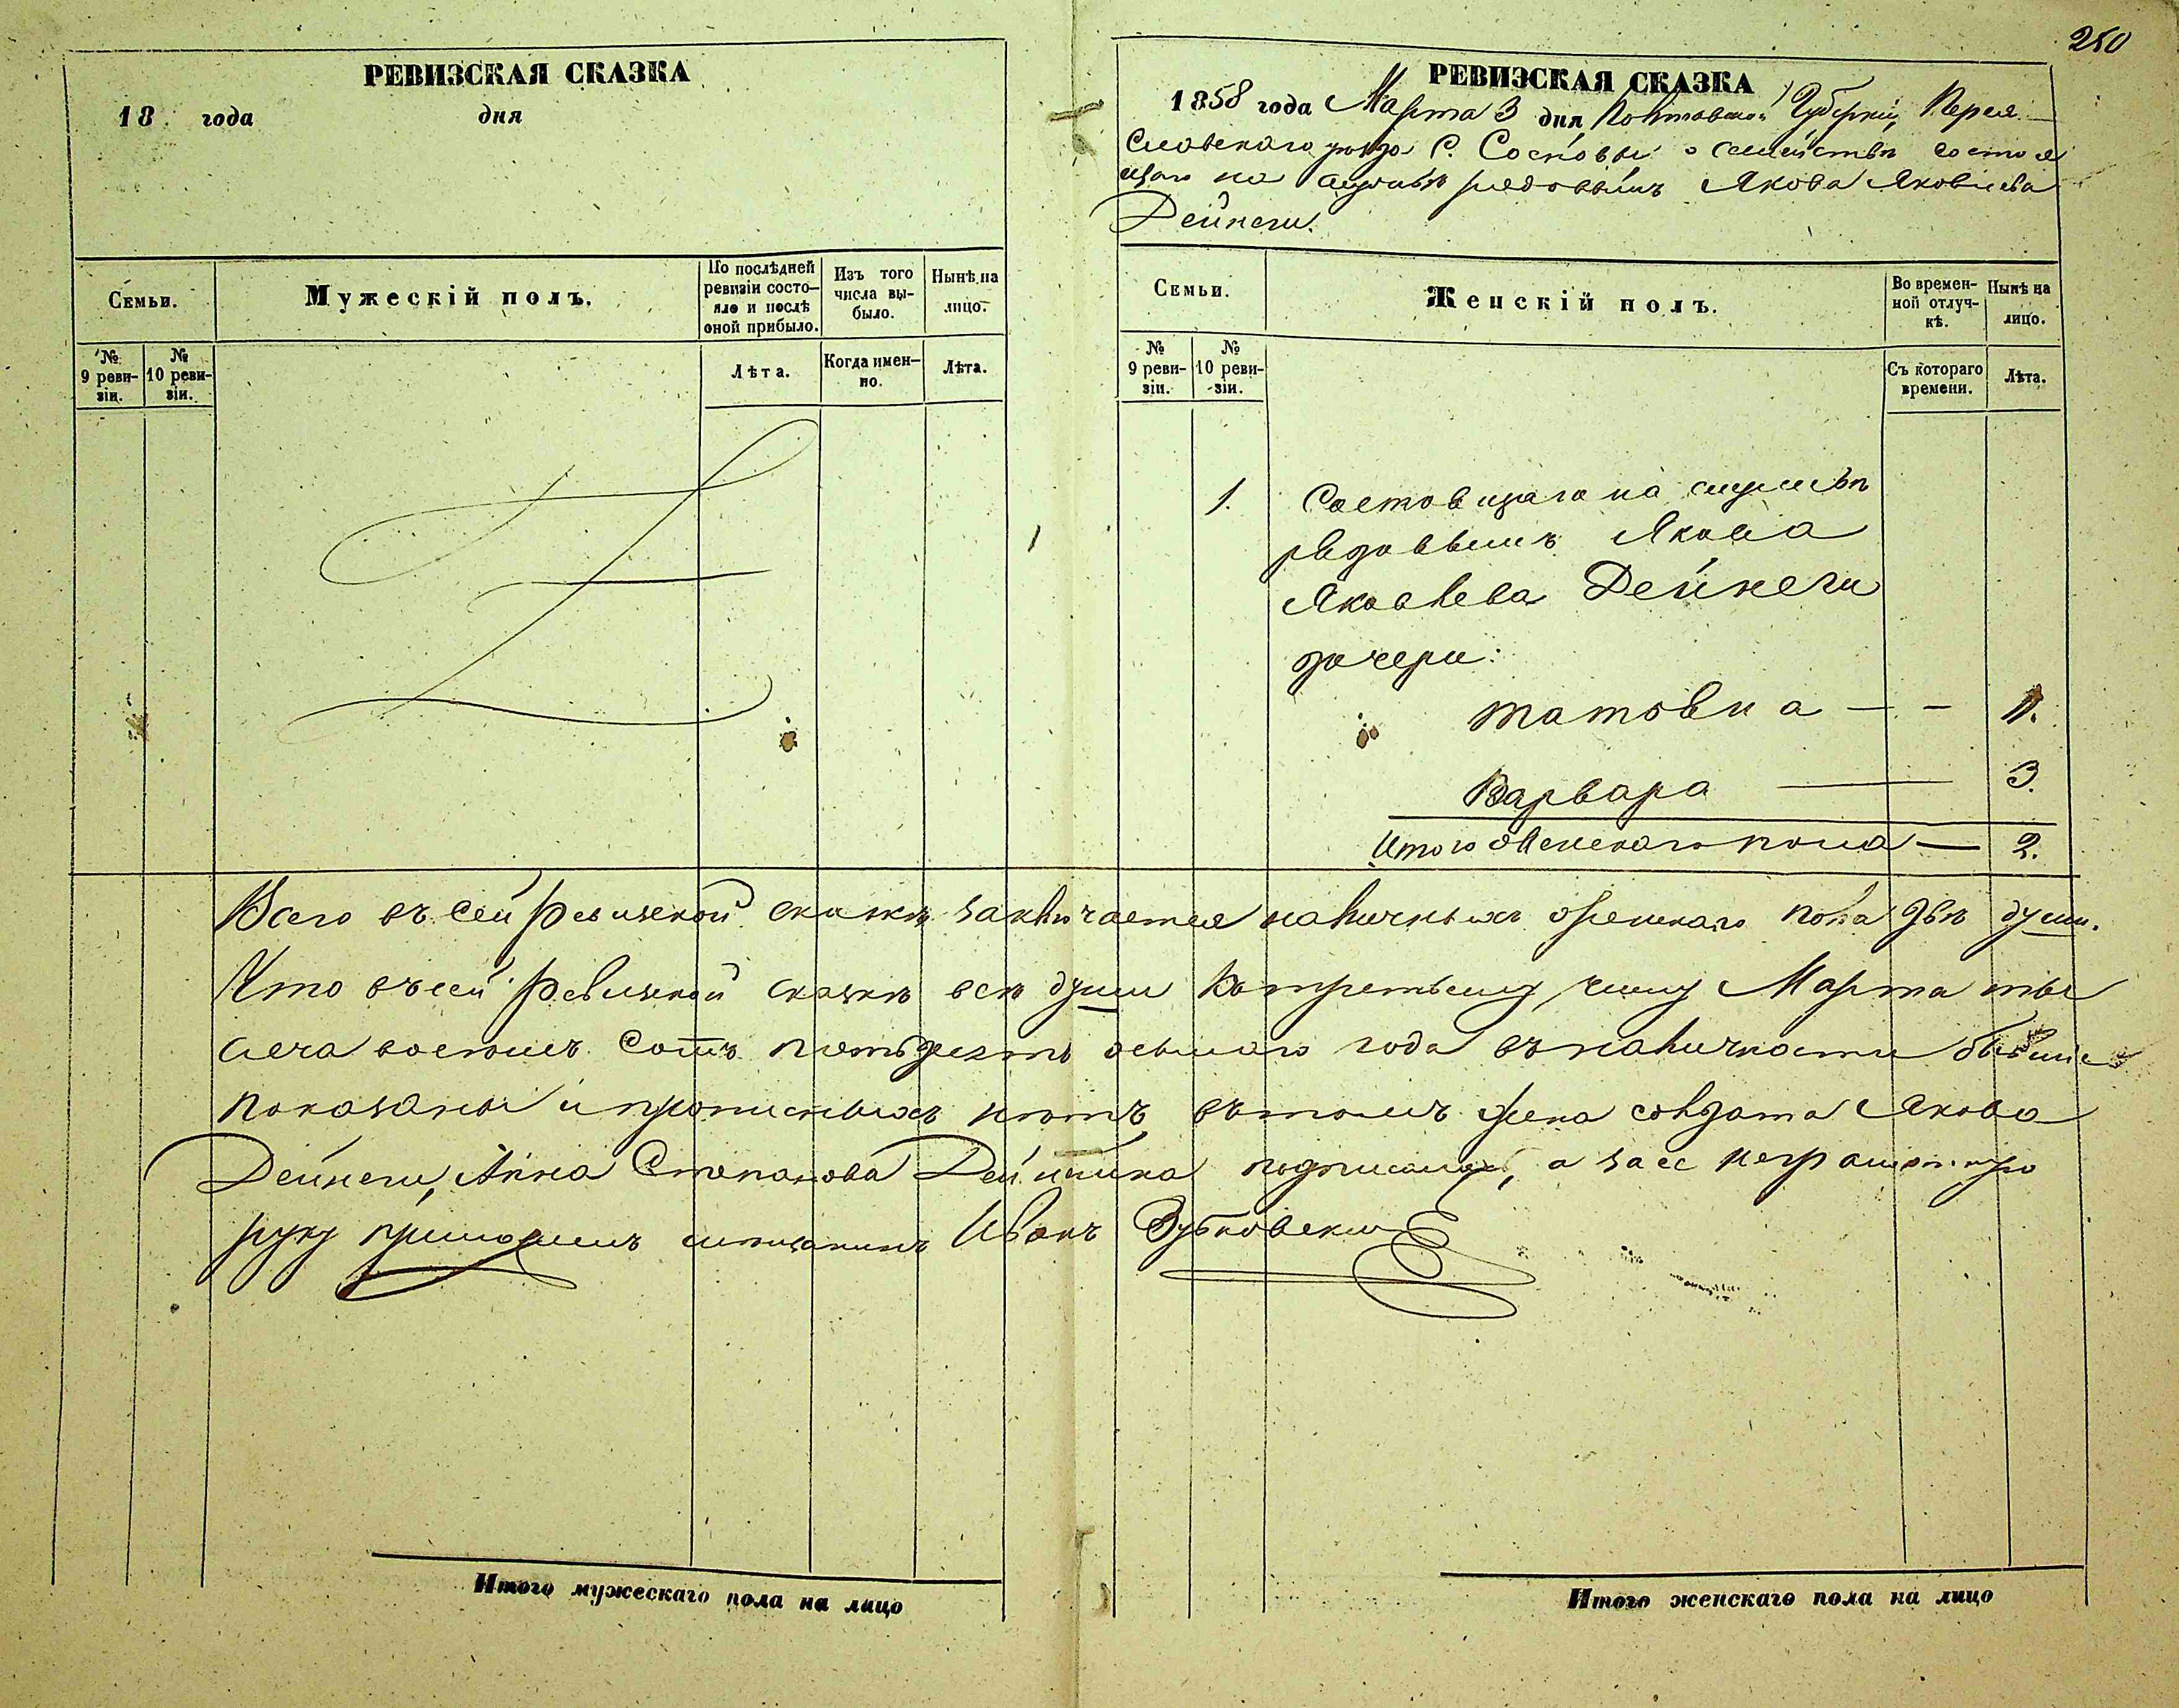 250
РЕВИЗСКАЯ СКАЗКА
18 года дня
Семьи.
Мужескій полъ.
По послѣдней ревизіи состояло и послѣ оной прибыло.
Изъ того числа выбыло.
Нынѣ на лицо.
№ 9 ревизіи.
№ 10 ревизіи.
Лѣта.
Когда именно.
Лѣта.
РЕВИЗСКАЯ СКАЗКА
1858 года Марта 3 дня Полтавской Губерніи, Перея
славскаго уѣзда С. Сосновы о семействѣ состоя
щаго на службѣ рядовымъ Якова Яковлева
Дейнеги.
Семьи.
Женскій полъ.
Во временной отлучкѣ.
Нынѣ на лицо.
№ 9 ревизіи.
№ 10 ревизіи.
Съ котораго времени.
Лѣта.
1. Состовщаго на службѣ
рядовымъ Якова
Яковлева Дейнеги
дочери:
Варвара — 3.
Итого женскаго пола — 2.
Всего въ сей ревизской сказкѣ заключается наличныхъ женскаго пола двѣ души.
Что въ сей ревизской сказкѣ всѣ души къ третьему числу Марта ты
сеча восемъ сотъ пятьдесятъ осьмаго года въ наличности бывшіе
показаны и прописныхъ нѣтъ въ томъ жена солдата Якова
Дейнеги, Анна Степанова подписалась, а за ее неграмотную
руку приложилъ мещанинъ Иванъ Зубковскій
Итого мужескаго пола на лицо
Итого женскаго пола на лицо